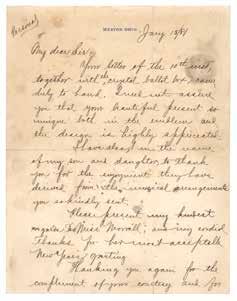 Personal
MENTOR OHIO.
Jany 15/81
My dear Sir,
Your letter of the 10th inst
together with the crystal ballot box, came
duly to hand. I need not assure
you that your beautiful present so
unique both in the emblem and
the design is highly appreciated.
I have also in the name
of my son and daughter to thank
you for the enjoyment they have
derived from the musical arrangements
you so kindly sent.
Please present my
to Miss and my cordial
Thanks for her most acceptable
New Years greeting
Thanking you again for the
compliment of your courtesy and for